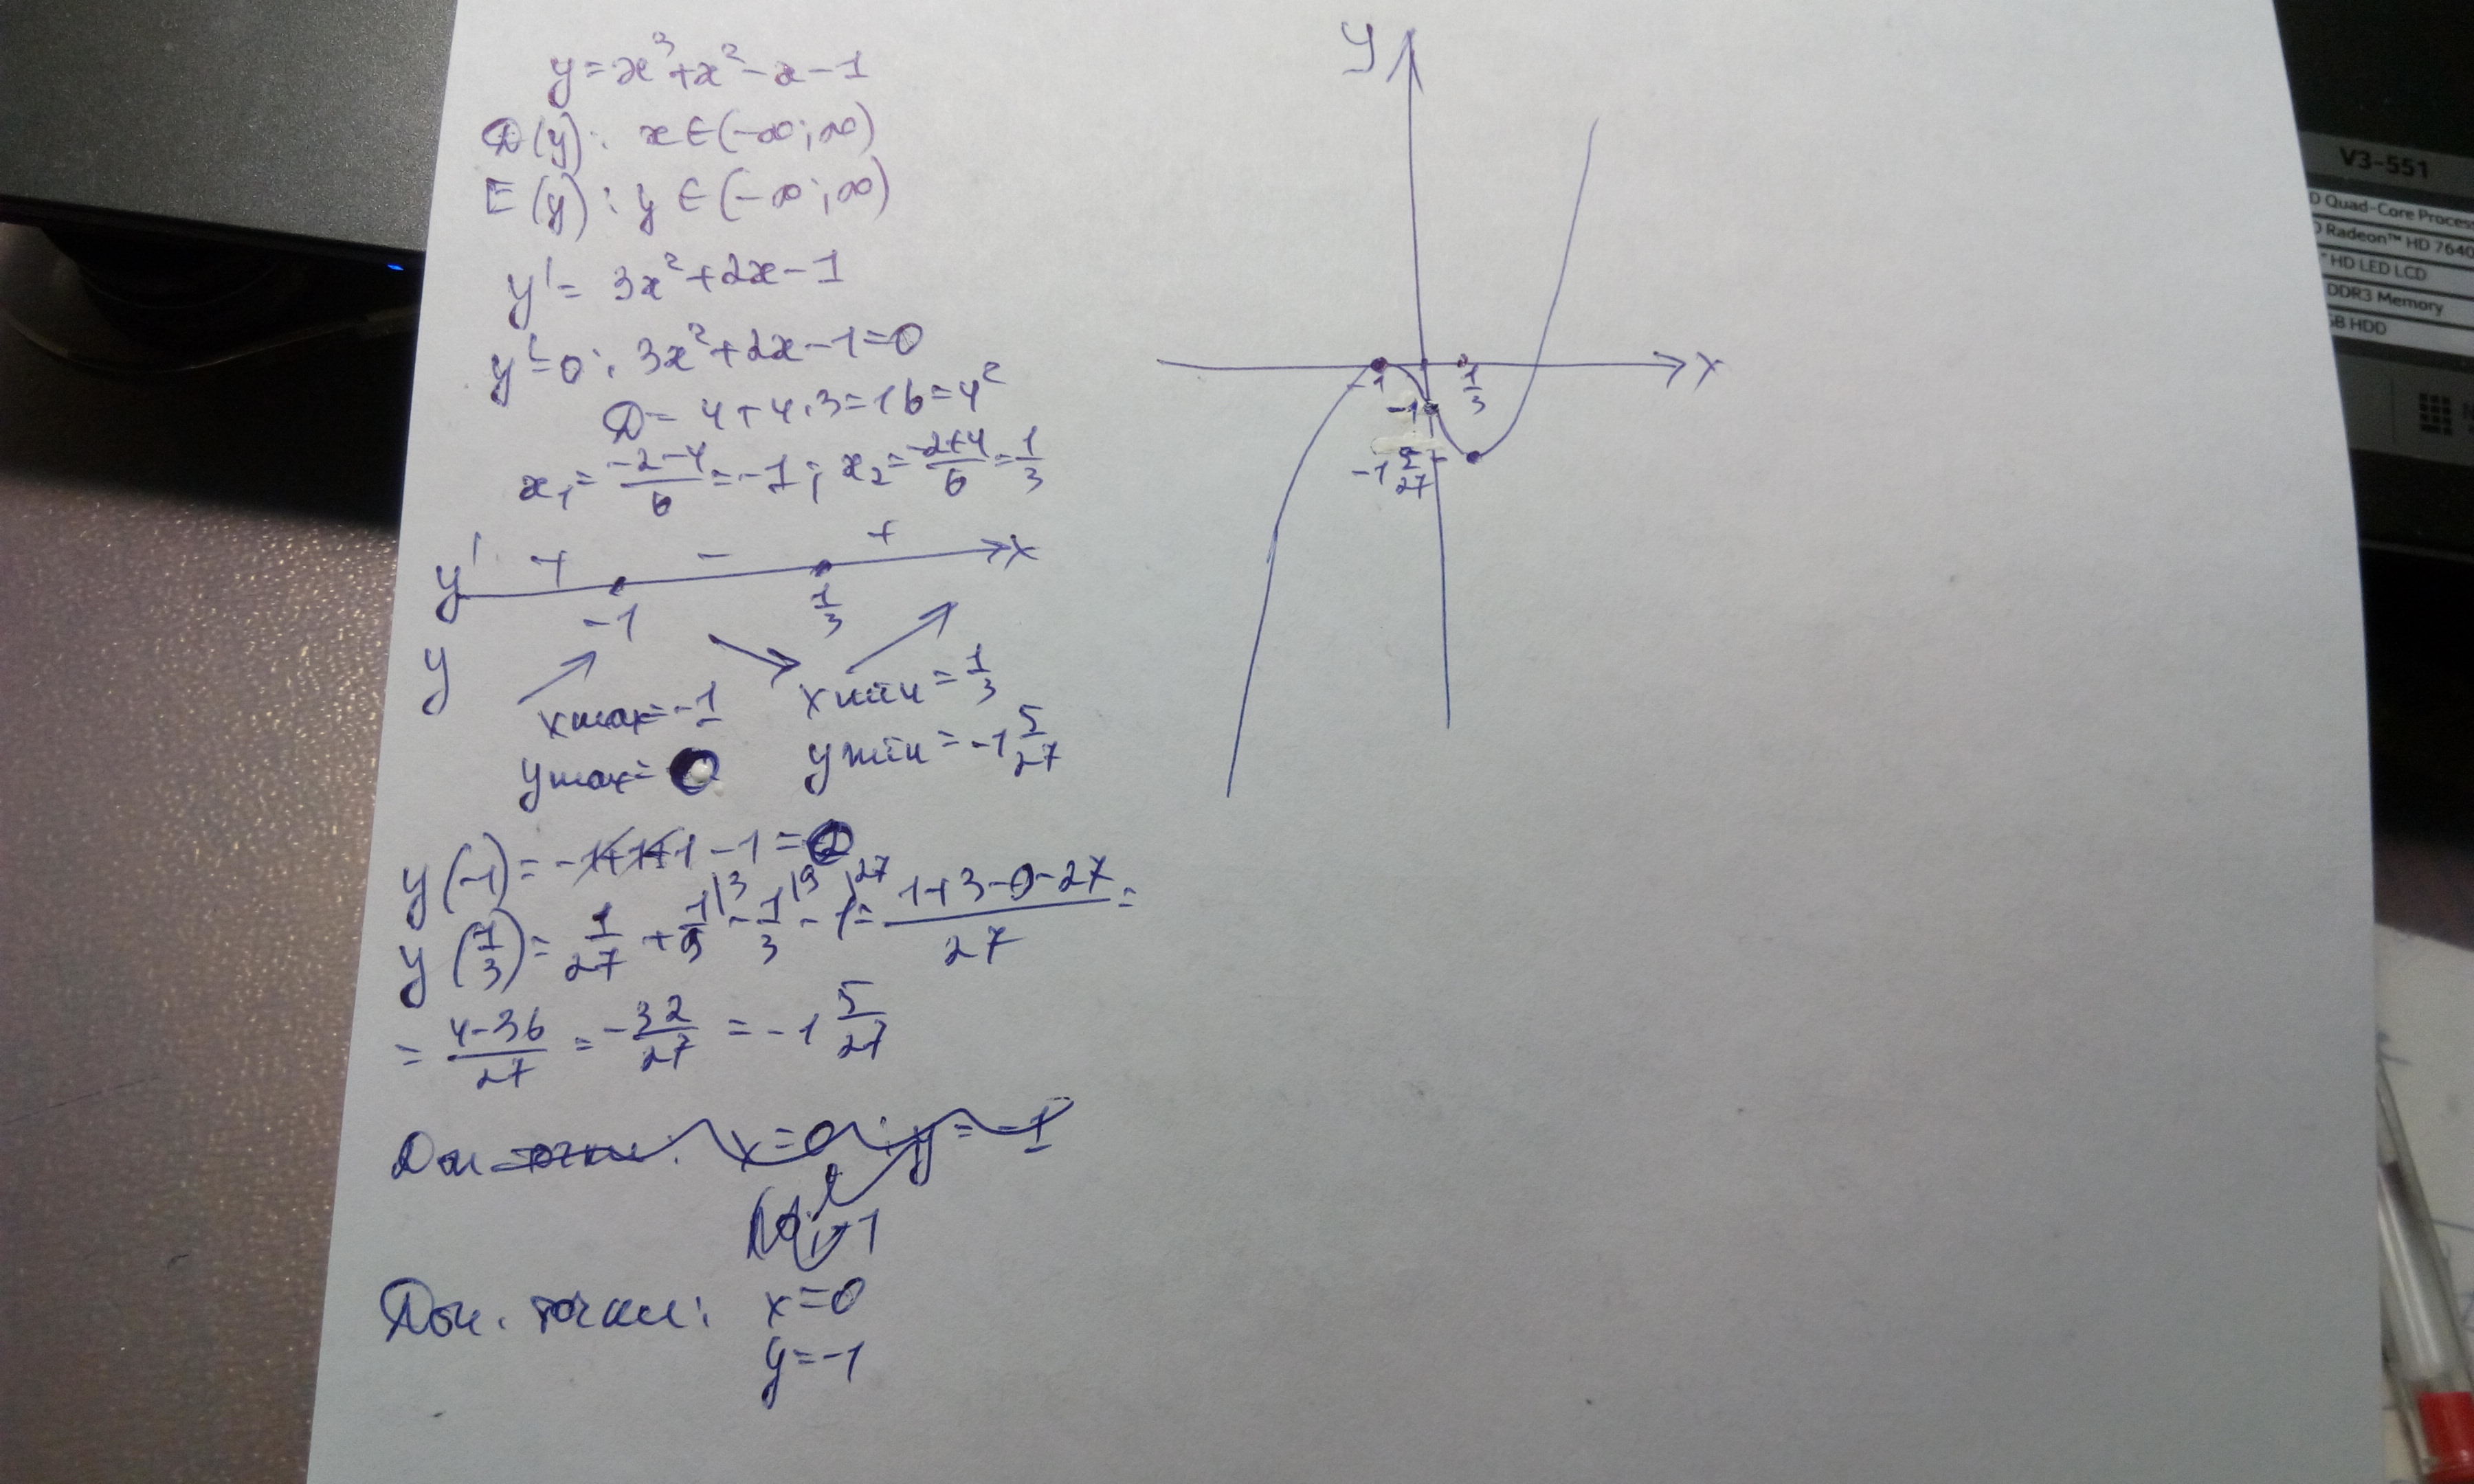 y = x³ + x² - x - 1
D(y): x ∈ (-∞; ∞)
E(y): y ∈ (-∞; ∞)
y' = 3x² + 2x - 1
y' = 0: 3x² + 2x - 1 = 0
D = 4 + 4·3 = 16 = 4²
x₁ = (-2-4)/6 = -1; x₂ = (-2+4)/6 = 1/3
y' + - + x
-1 1/3
y
xmax = -1 xmin = 1/3
ymax = 0 ymin = -1 5/27
y(-1) = -1+1+1-1 = 0
y(1/3) = 1/27 + 1/9|3 - 1/3|9 - 1|27 = (1+3-9-27)/27 =
= (4-36)/27 = -32/27 = -1 5/27
x = 0; y = -1
Доп. точки: x = 0
y = -1
y
x
-1
1/3
-1
-1 5/27
V3-551
D Quad-Core Process
D Radeon™ HD 7640
HD LED LCD
DDR3 Memory
GB HDD